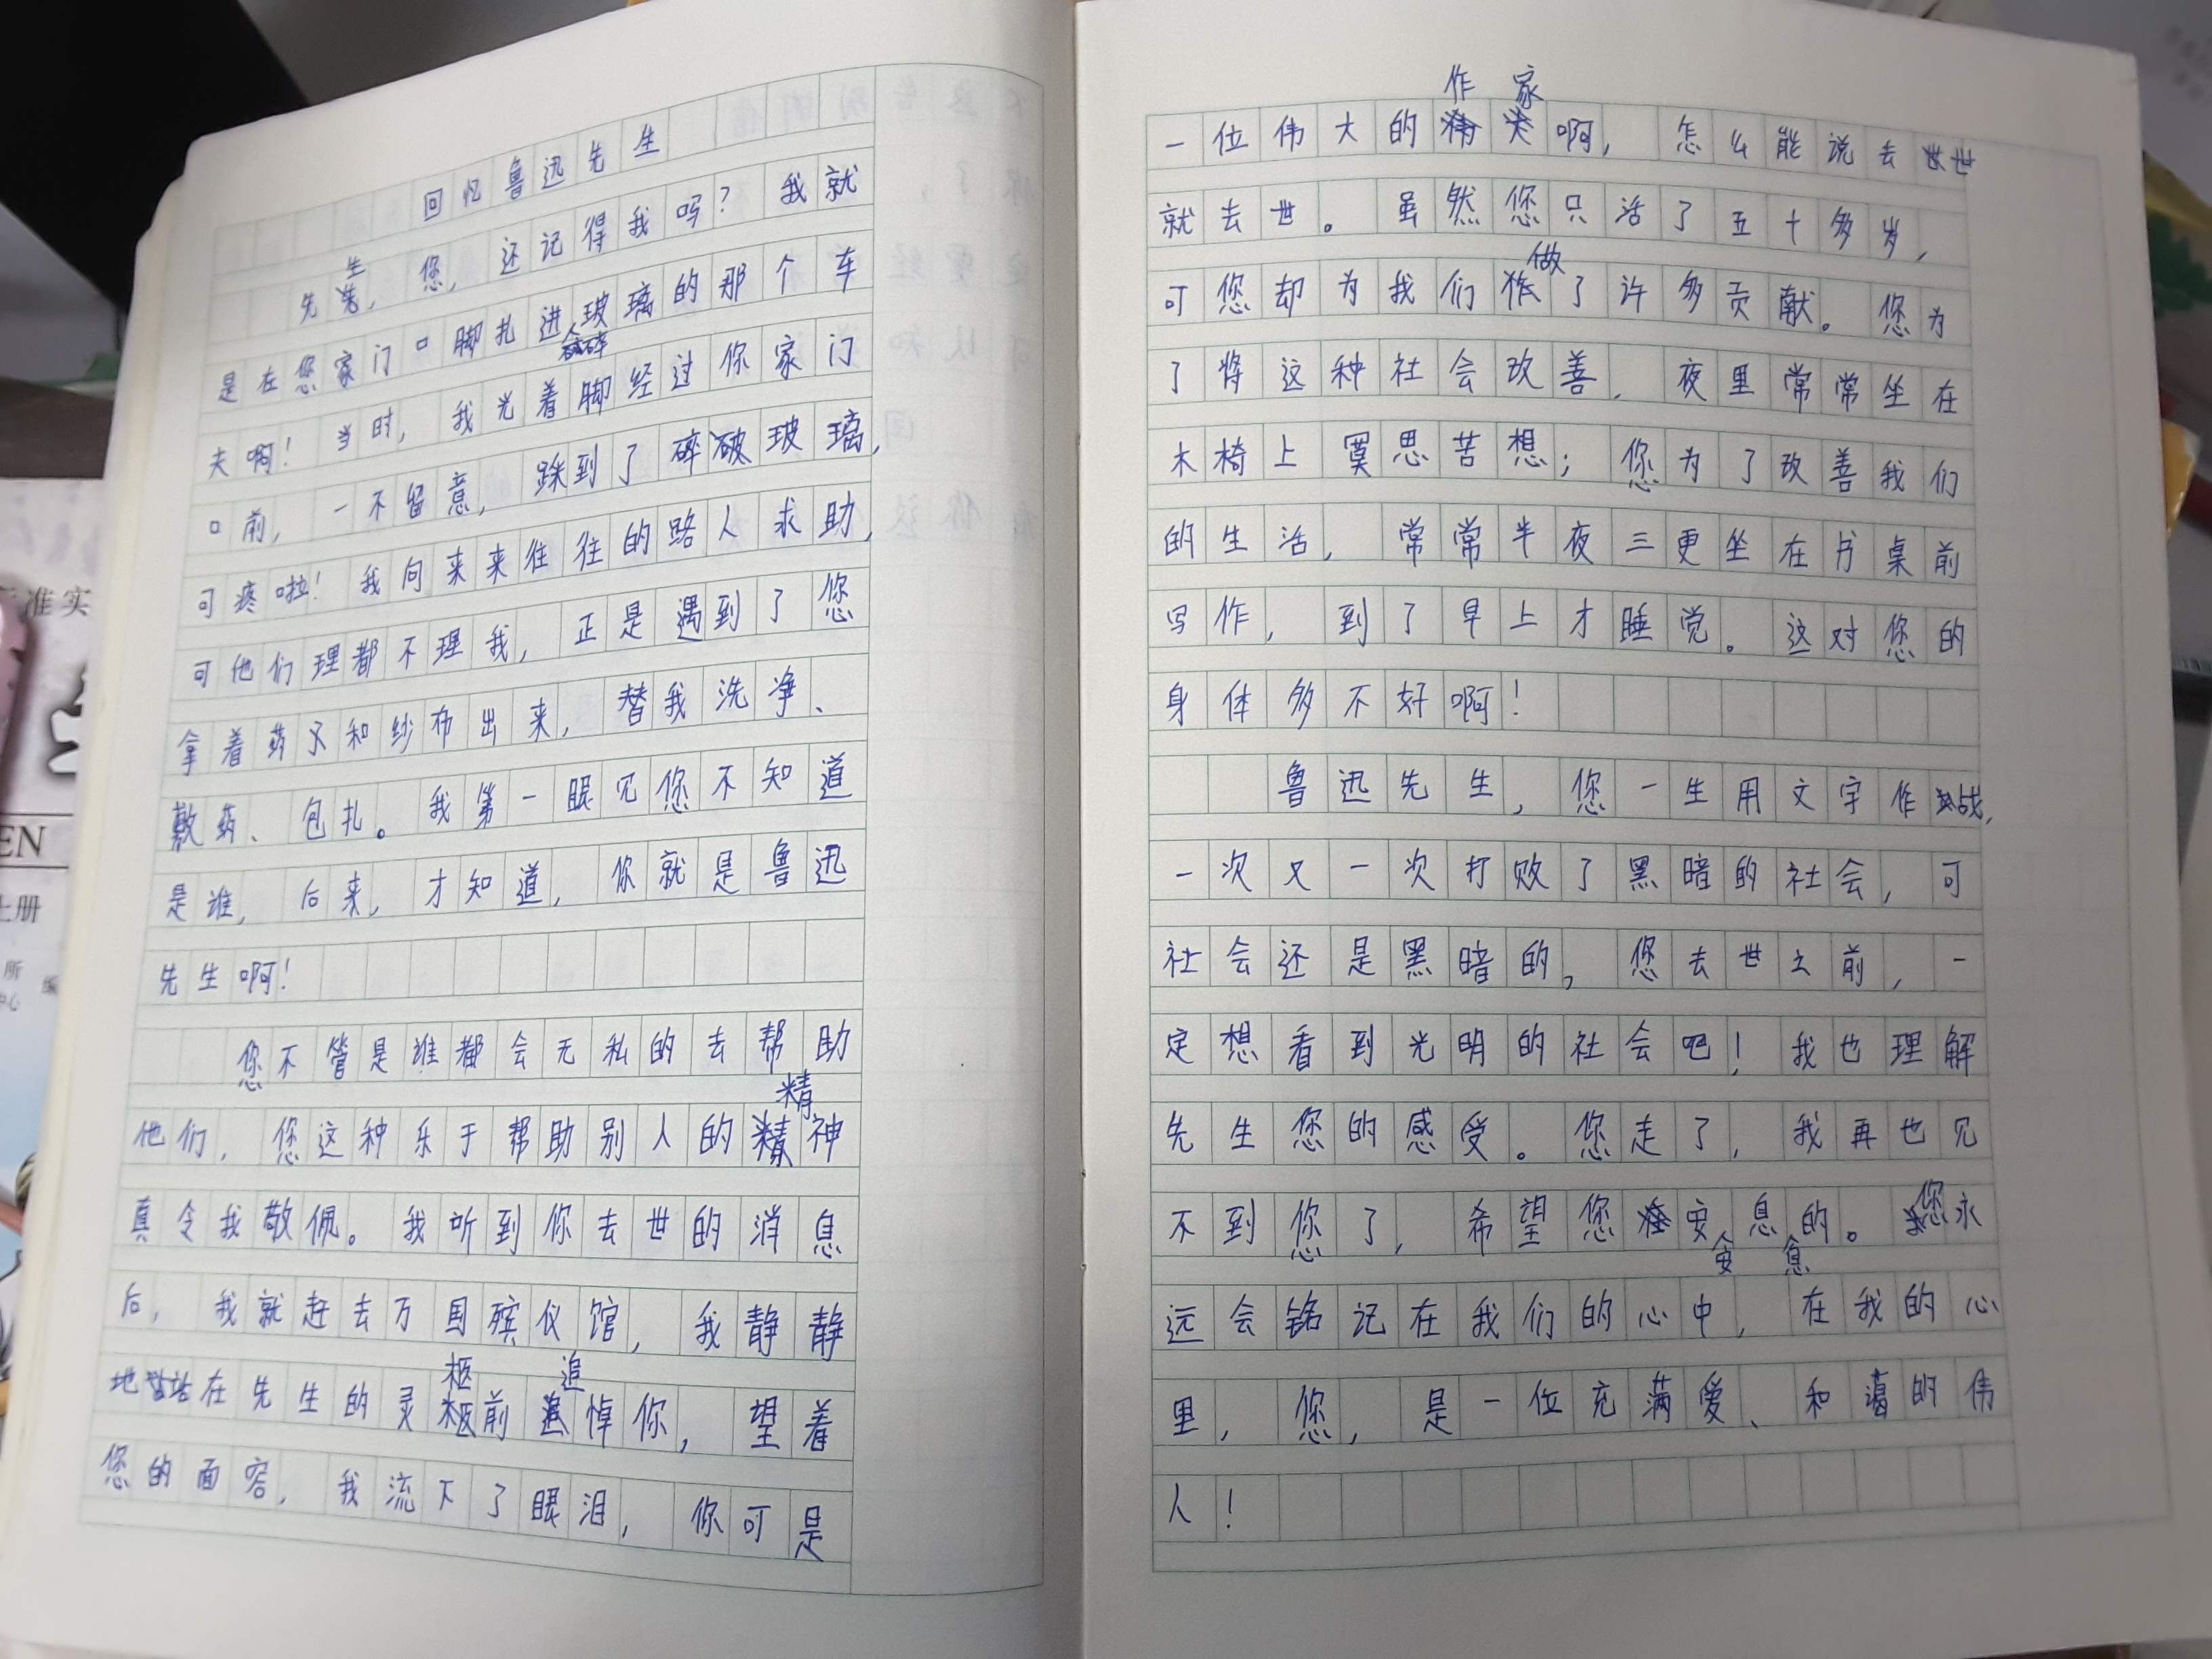 回忆鲁迅先生
先生，您，还记得我吗？我就
是在您家门口脚扎进玻璃的那个车
夫啊！当时，我光着脚经过你家门
口前，一不留意，踩到了碎破玻璃，
可疼啦！我向来来往往的路人求助，
可他们理都不理我，正是遇到了您
拿着药又和纱布出来，替我洗净、
敷药、包扎。我第一眼见您不知道
是谁，后来，才知道，你就是鲁迅
先生啊！
您不管是谁都会无私的去帮助
他们，您这种乐于帮助别人的精神
真令我敬佩。我听到你去世的消息
后，我就赶去万国殡仪馆，我静静
地站在先生的灵柩前追悼你，望着
您的面容，我流下了眼泪，你可是
一位伟大的作家啊，怎么能说去世
就去世。虽然您只活了五十多岁，
可您却为我们做了许多贡献。您为
了将这种社会改善，夜里常常坐在
木椅上冥思苦想；您为了改善我们
的生活，常常半夜三更坐在书桌前
写作，到了早上才睡觉。这对您的
身体多不好啊！
鲁迅先生，您一生用文字作战，
一次又一次打败了黑暗的社会，可
社会还是黑暗的，您去世之前，一
定想看到光明的社会吧！我也理解
先生您的感受。您走了，我再也见
不到您了，希望您安息的。您永
远会铭记在我们的心中，在我的心
里，您，是一位充满爱、和蔼的伟
人！
准实
EN
上册
所
编
中心